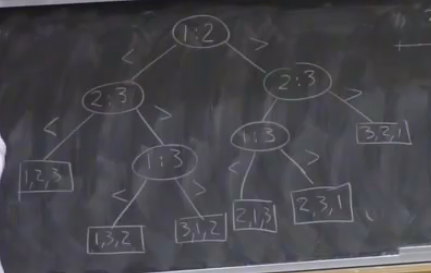 1:2
< >
2:3 2:3
< > >
1:3 1:3 3,2,1
1,2,3 < > < >
1,3,2 3,1,2 2,1,3 2,3,1